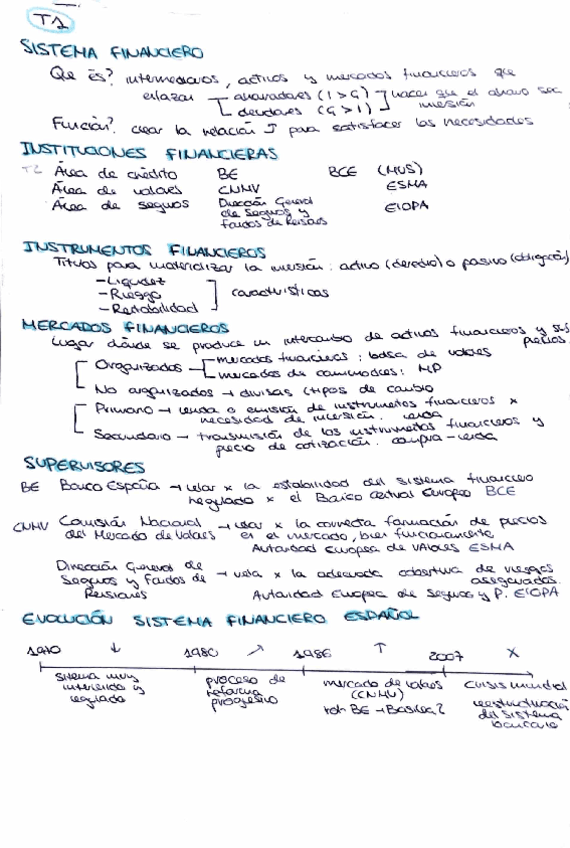 T1
SISTEMA FINANCIERO
Que es? intermediarios, activos y mercados financieros que
enlazan ahorradores (I > G) hacer que el ahorro sea
deudores (G > I) inversión
Función? crear la relación I para satisfacer las necesidades
INSTITUCIONES FINANCIERAS
T2 Área de crédito BE BCE (MUS)
Área de valores CNMV ESMA
Área de seguros Dirección General
de Seguros y EIOPA
Fondos de Pensiones
INSTRUMENTOS FINANCIEROS
Títulos para materializar la inversión: activo (derecho) o pasivo (obligación)
- Liquidez
- Riesgo características
- Rentabilidad
MERCADOS FINANCIEROS
Lugar dónde se produce un intercambio de activos financieros y sus
precios.
Organizados mercados financieros: bolsa de valores
mercados de commodities: MP
No organizados → divisas (tipos de cambio
Primario → venta o emisión de instrumentos financieros x
necesidad de inversión. venta
Secundario → transmisión de los instrumentos financieros y
precio de cotización. compra-venta
SUPERVISORES
BE Banco España → velar x la estabilidad del sistema financiero
regulado x el Banco central Europeo BCE
CNMV Comisión Nacional → velar x la correcta formación de precios
del Mercado de Valores en el mercado, bien funcionamiento
Autoridad Europea de VAlores ESMA
Dirección General de
Seguros y Fondos de → vela x la adecuada cobertura de riesgos
Pensiones asegurados.
Autoridad Europea de Seguros y P. EIOPA
EVOLUCIÓN SISTEMA FINANCIERO ESPAÑOL
↓ 1980 ↗ 1986 ↑ 2007 X
sistema muy proceso de mercado de valores crisis mundial
intervenido y reforma (CNMV) reestructuración
regulado progresivo BE → Basilea 2 del sistema
bancario